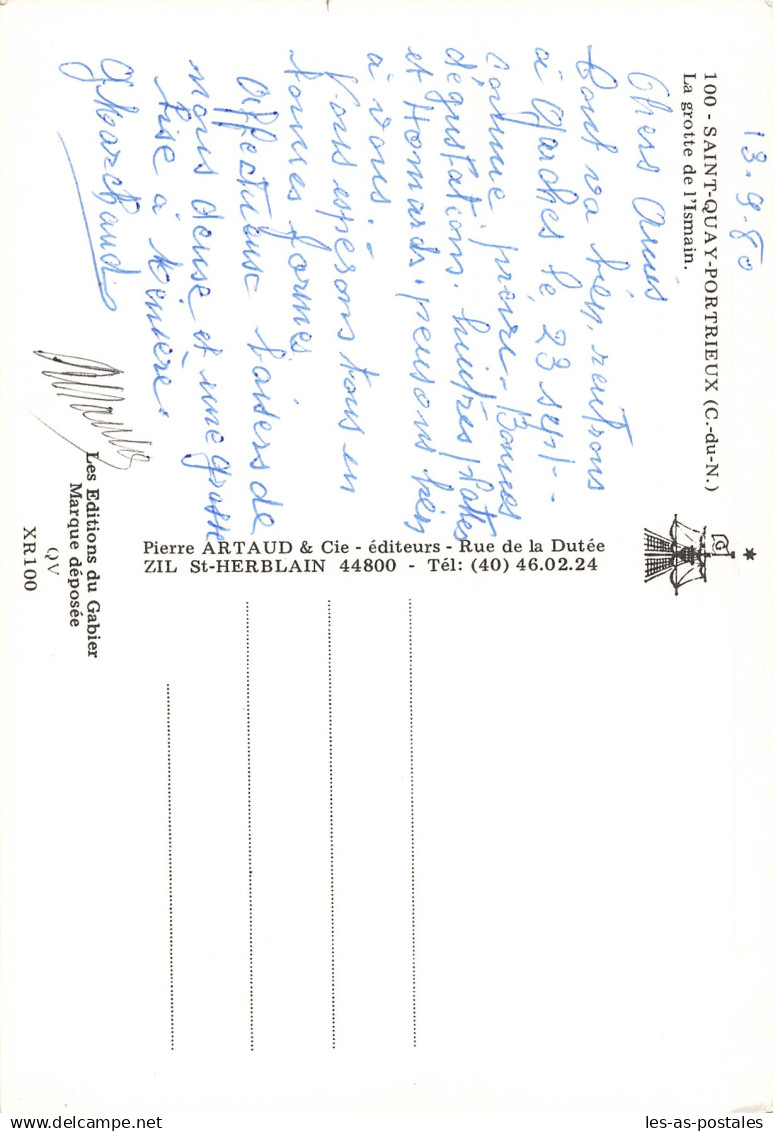 100 - SAINT-QUAY-PORTRIEUX (C.-du-N.)
La grotte de l'Ismain.
13.9.80
Chers Amis
tout va bien, rentrons
à Garches le 23 sept -
comme prévu. Bonnes
dégustations. huitres plates
et Homards. pensons bien
à vous.
Vous espérons tous en
bonnes formes
Affectueuse baisers de
nous deuse et une grosse
bise à
GMarchand
Pierre ARTAUD & Cie - éditeurs - Rue de la Dutée
ZIL St-HERBLAIN 44800 - Tél: (40) 46.02.24
G
Les Editions du Gabier
Marque déposée
QV
XR100
les-as-postales